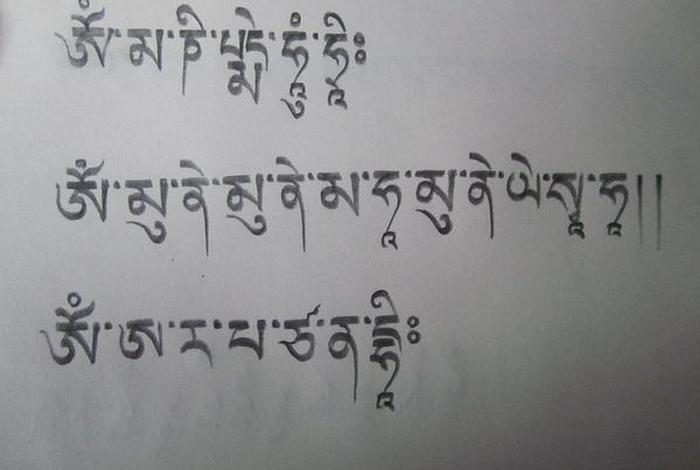 ཨོཾ་མ་ཎི་པདྨེ་ཧཱུཾ་ཧྲཱིཿ
ཨོཾ་མུ་ནེ་མུ་ནེ་མ་ཧཱ་མུ་ནེ་ཡེ་སྭཱ་ཧཱ།།
ཨོཾ་ཨ་ར་པ་ཙ་ན་དྷཱིཿ